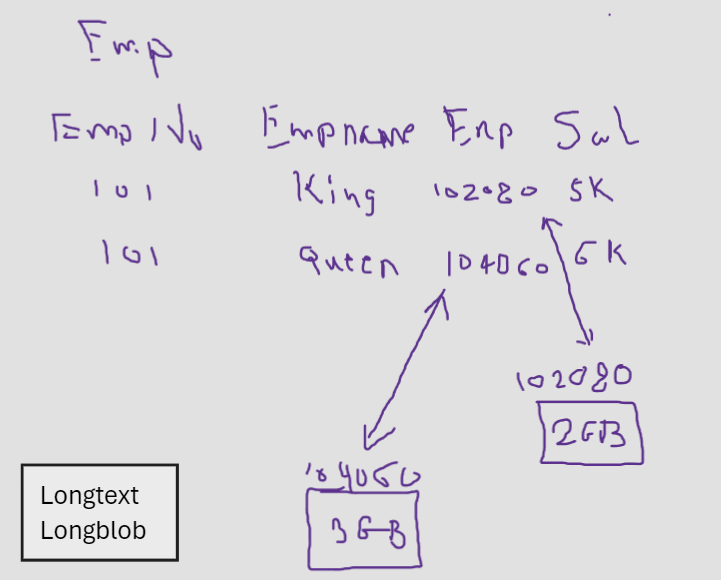 Emp
EmpNo Empname Exp Sal
101 King 102080 5K
101 Queen 104060 6K
102080
2GB
104060
3GB
Longtext
Longblob